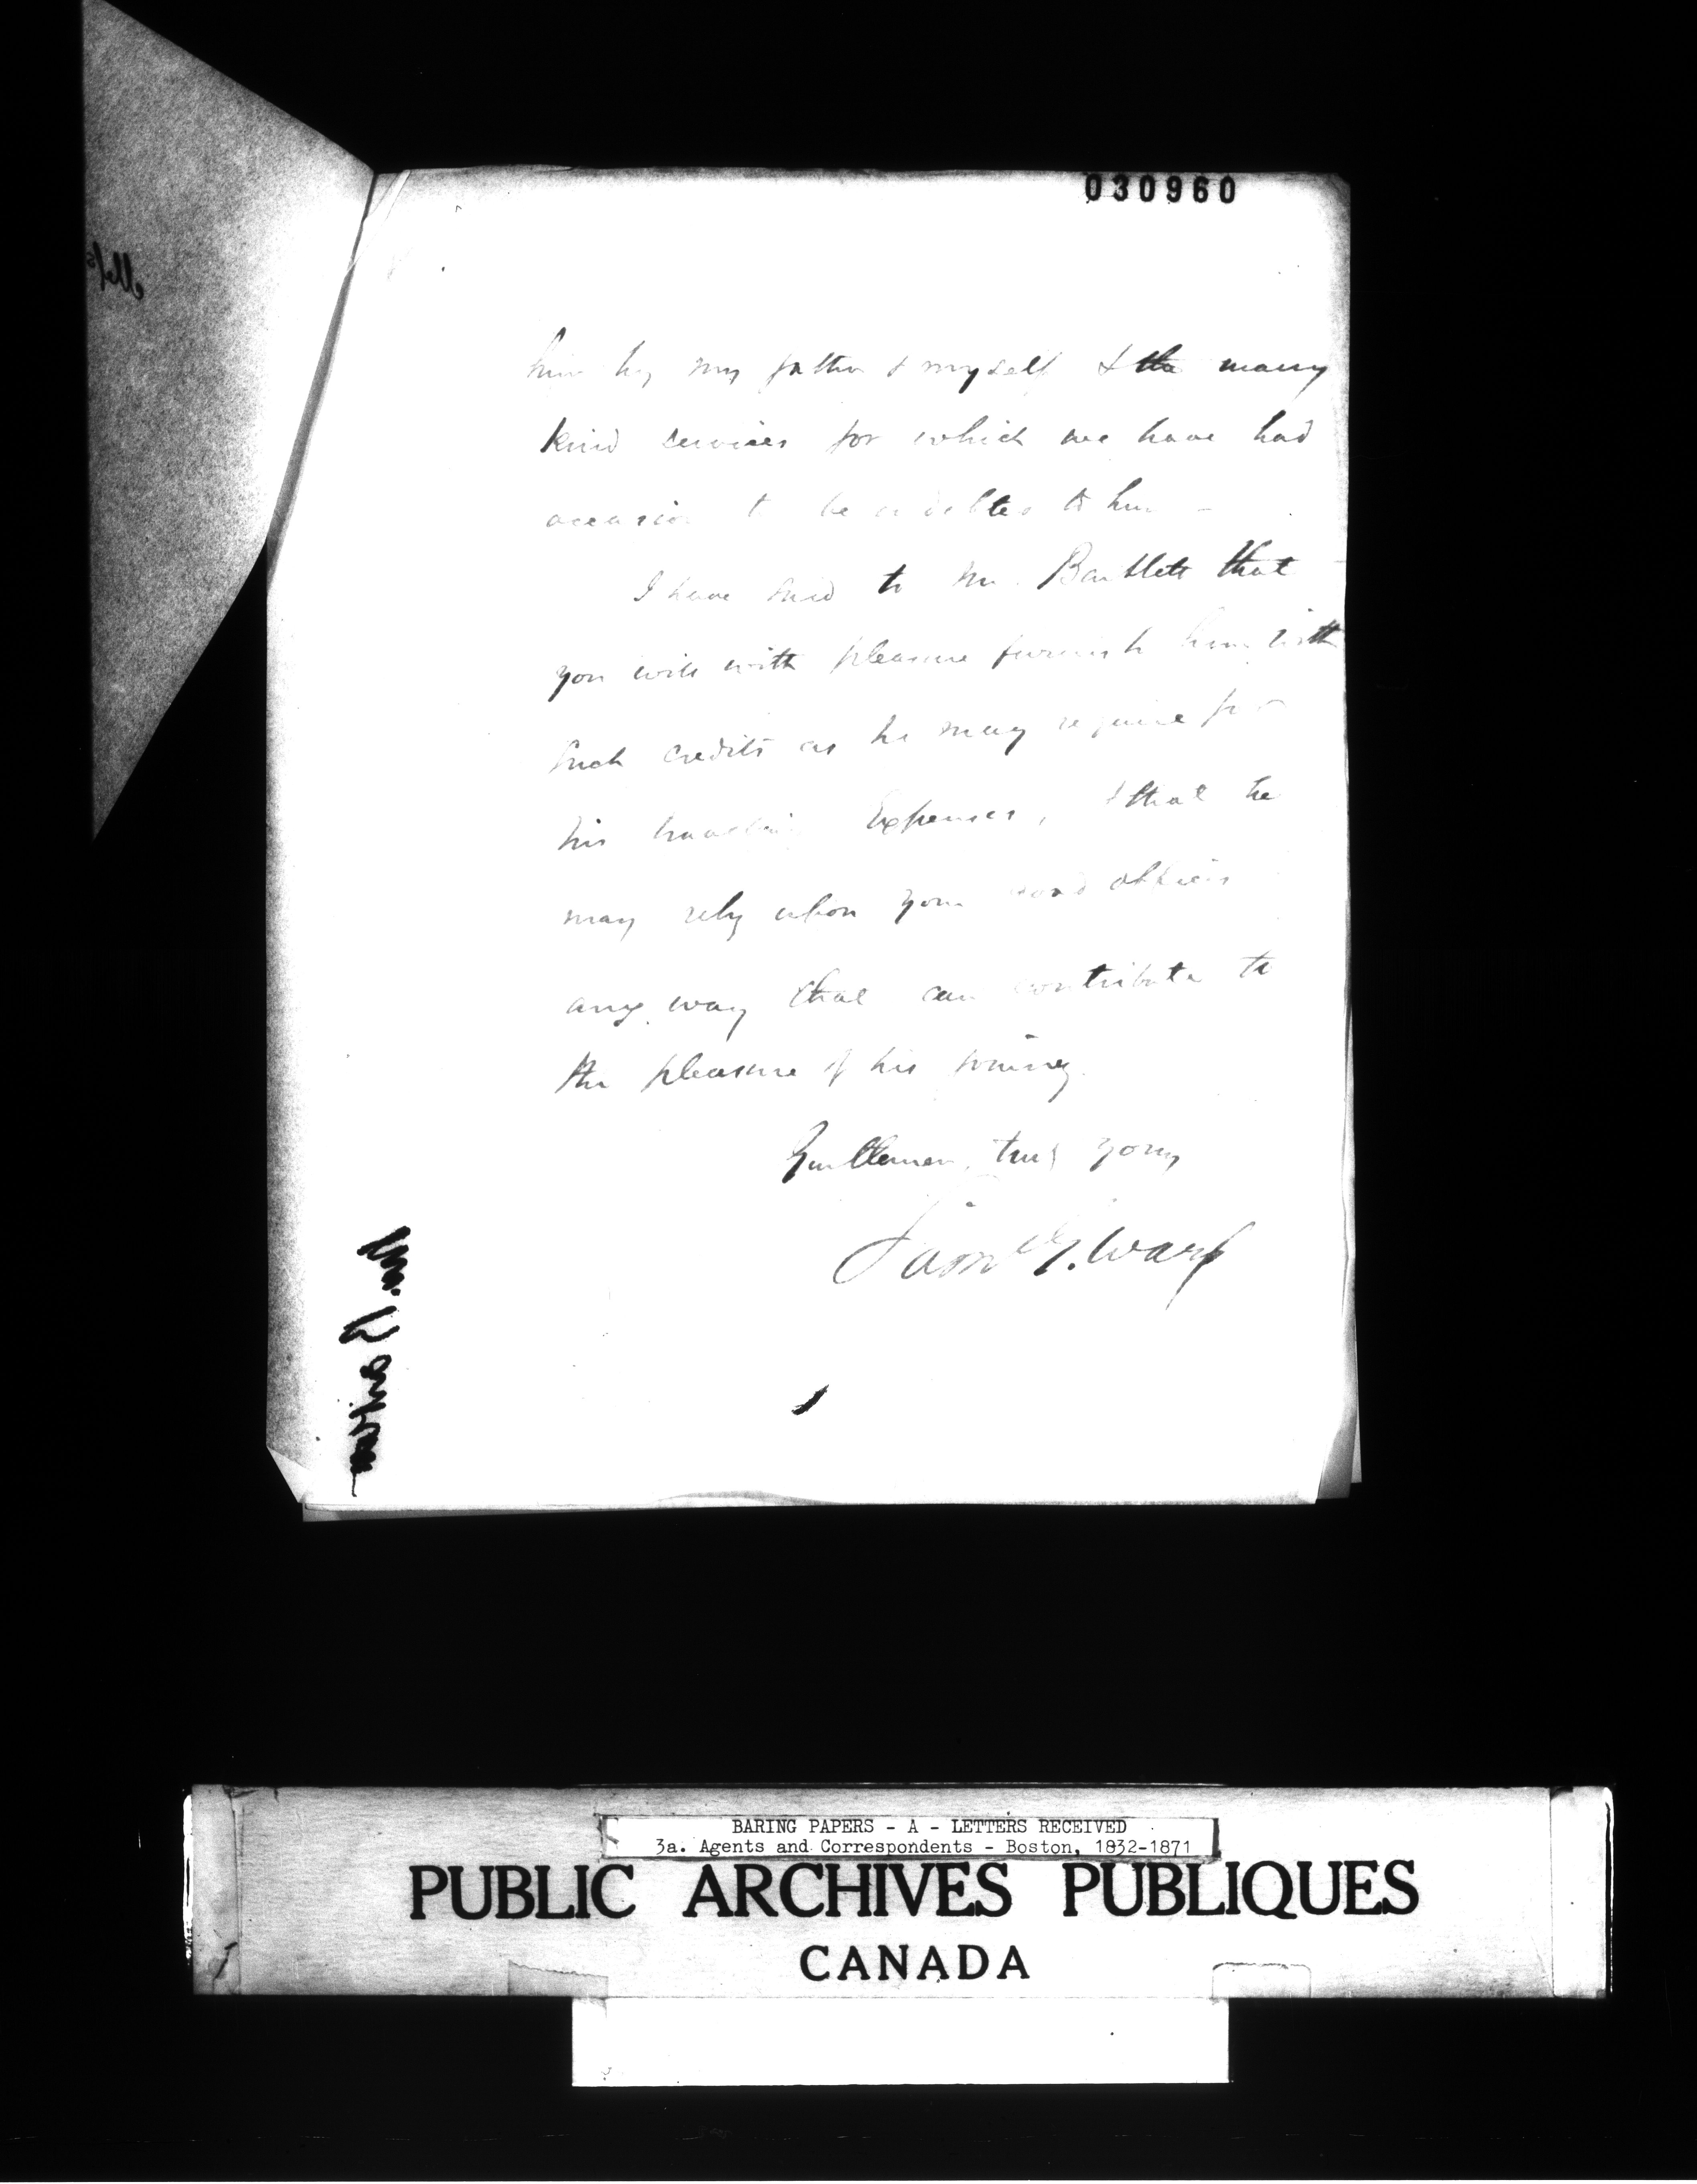 030960
him by my father & myself & the many
kind services for which we have had
occasion to be indebted to him -
I have said to Mr. Bartlett that
you will with pleasure furnish him with
such credits as he may require for
his travelling Expenses, & that he
may rely upon your good offices
any way that can contribute to
the pleasure of his journey.
Gentlemen, truly yours
Sam G. Ward
BARING PAPERS - A - LETTERS RECEIVED
3a. Agents and Correspondents - Boston, 1832-1871
PUBLIC ARCHIVES PUBLIQUES
CANADA